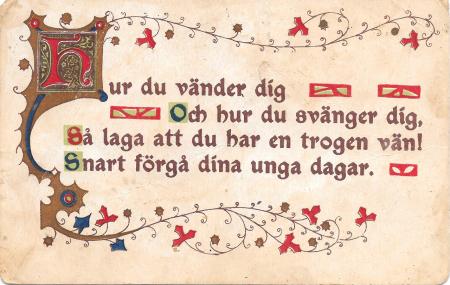 Hur du vänder dig
Och hur du svänger dig,
Så laga att du har en trogen vän!
Snart förgå dina unga dagar.